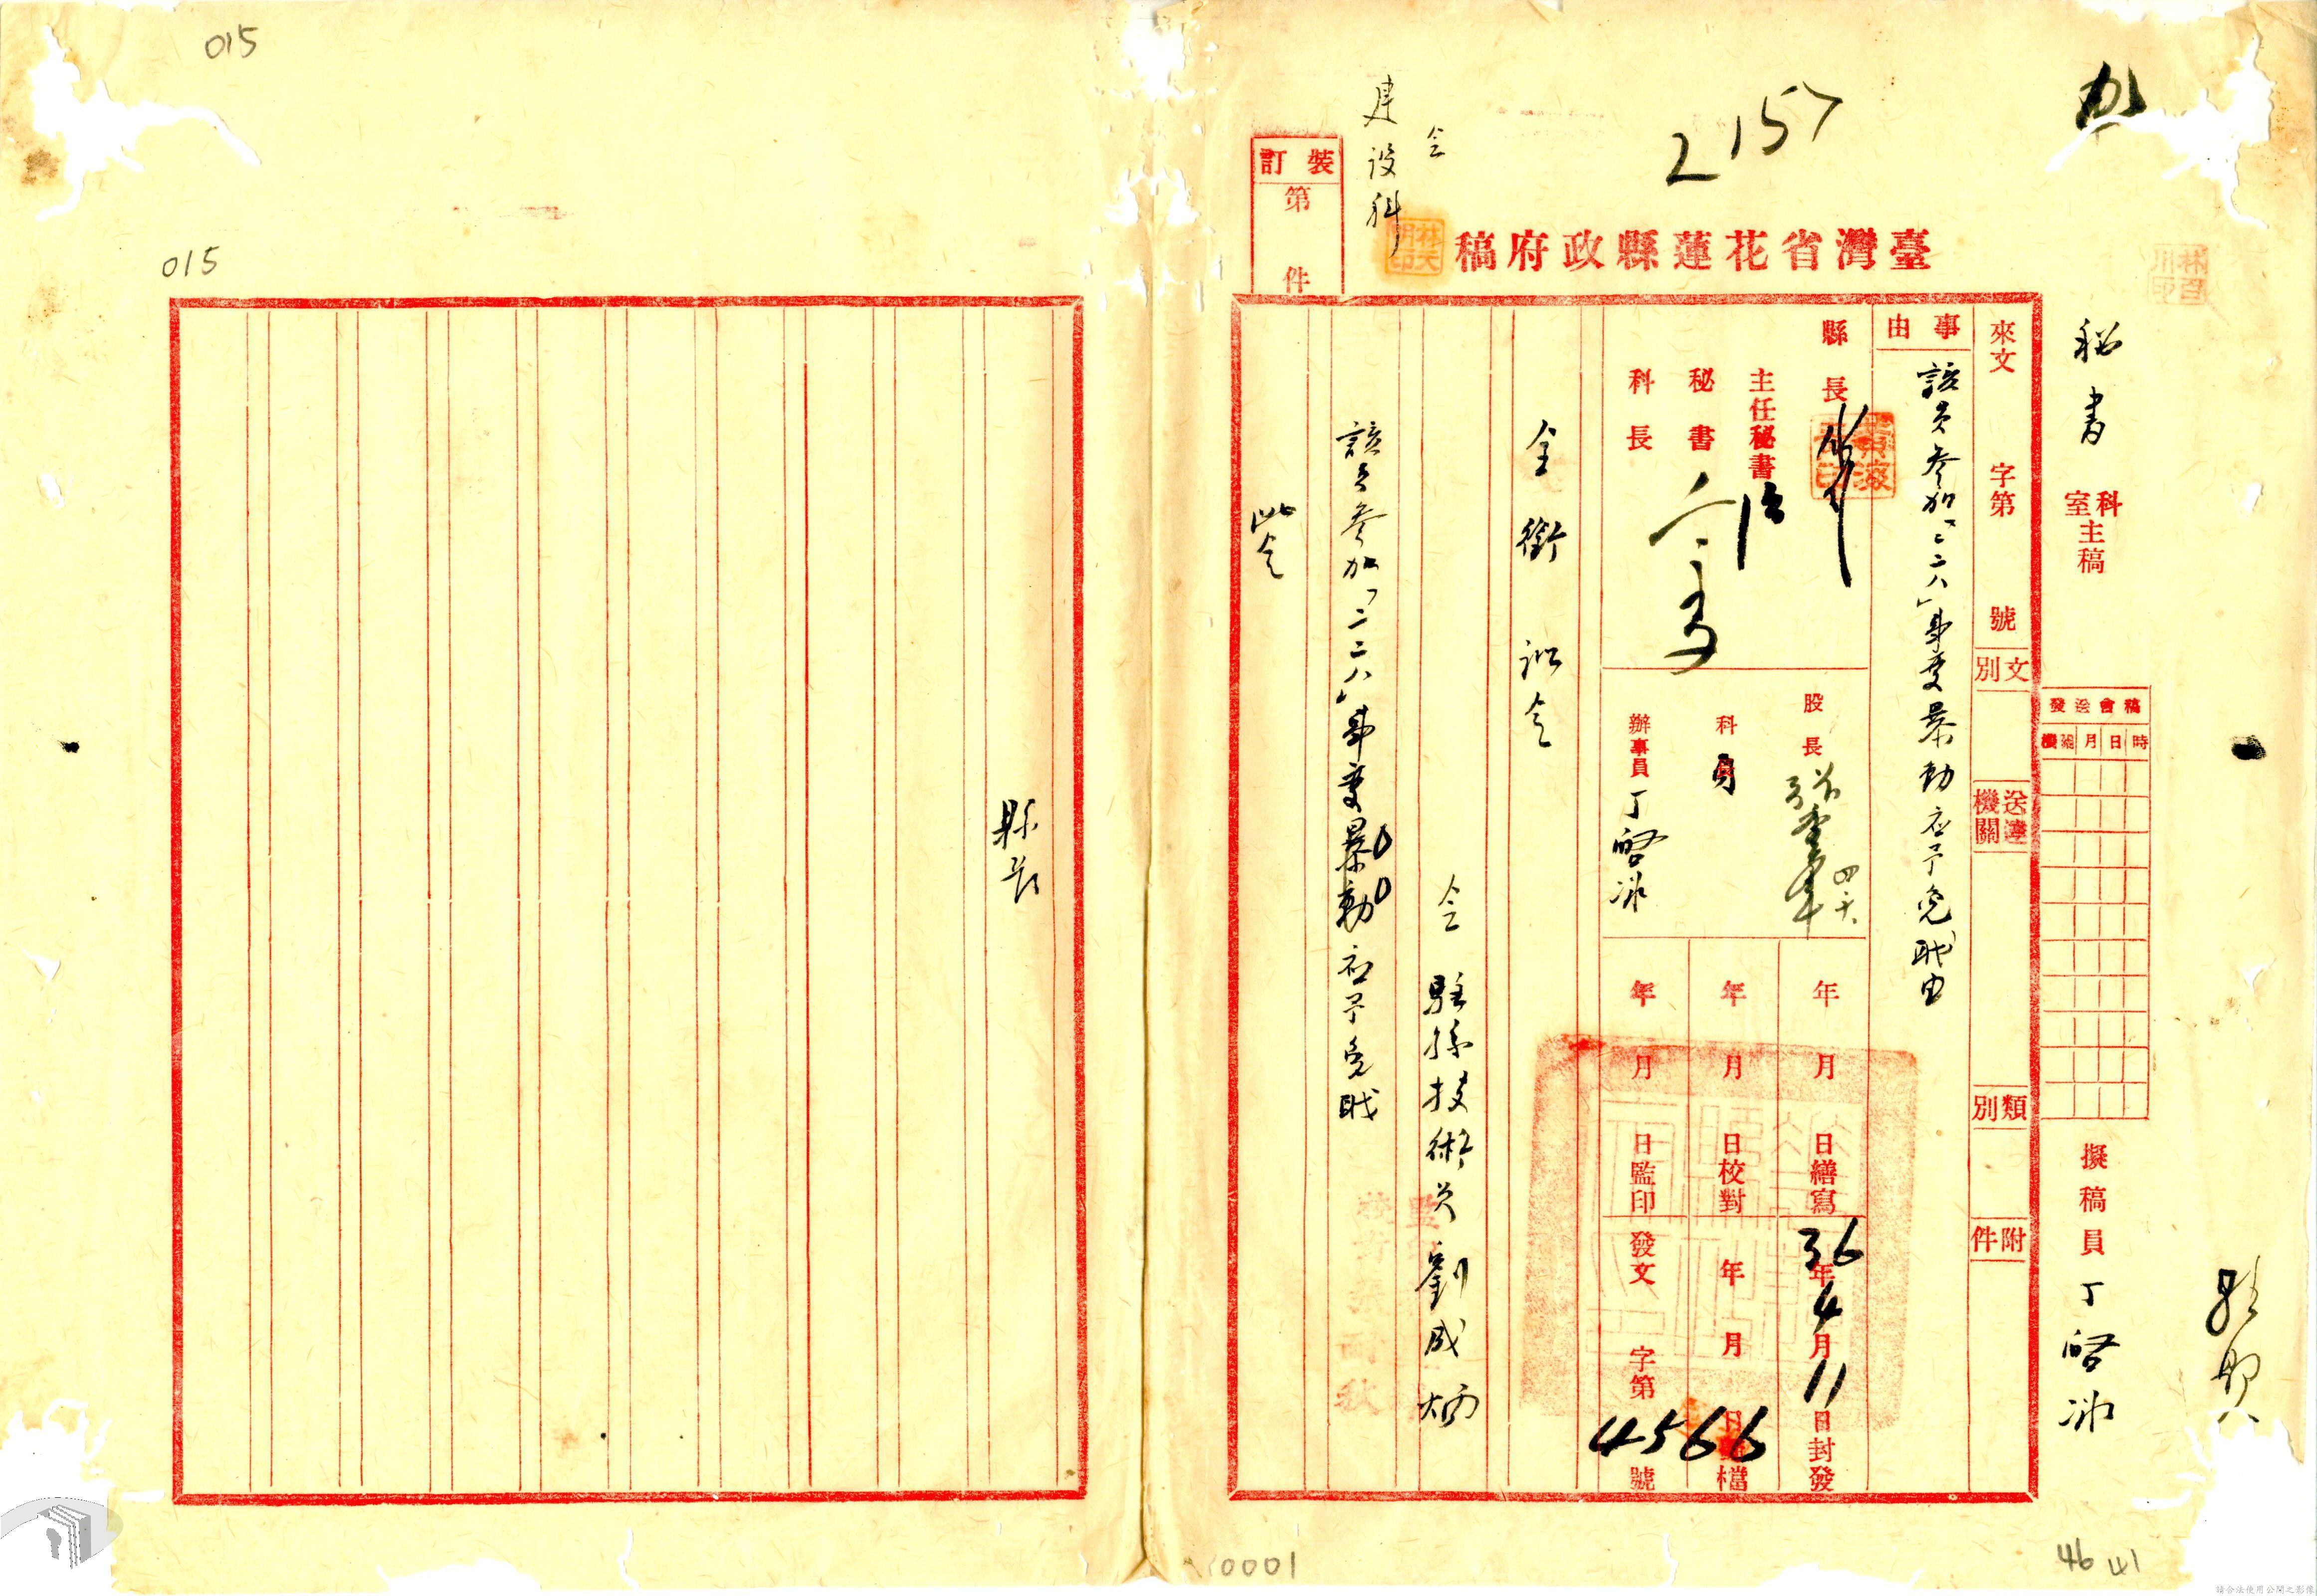 015
015
2157
會
建設科
裝訂
第
件
臺灣省花蓮縣政府稿
秘書
科室主稿
稿會送發
時日月機關
擬稿員 丁啓冰
來文 字第 號
文別
送達機關
類別
附件
事由
該員參加「二二八」事變暴動应予免职由
縣長
主任秘書
秘書
科長
股長
四、十六
科員
辦事員 丁啓冰
年 月 日繕寫
年 月 日校對
年 月 日監印
36年4月11日封發
年 月 日 檔
發文 字第 4566 號
全銜訓令
令 駐縣技術員劉成炳
該員參加「二二八」事變暴動应予免职
此令
縣長
0001
46
41
請合法使用公開之影像